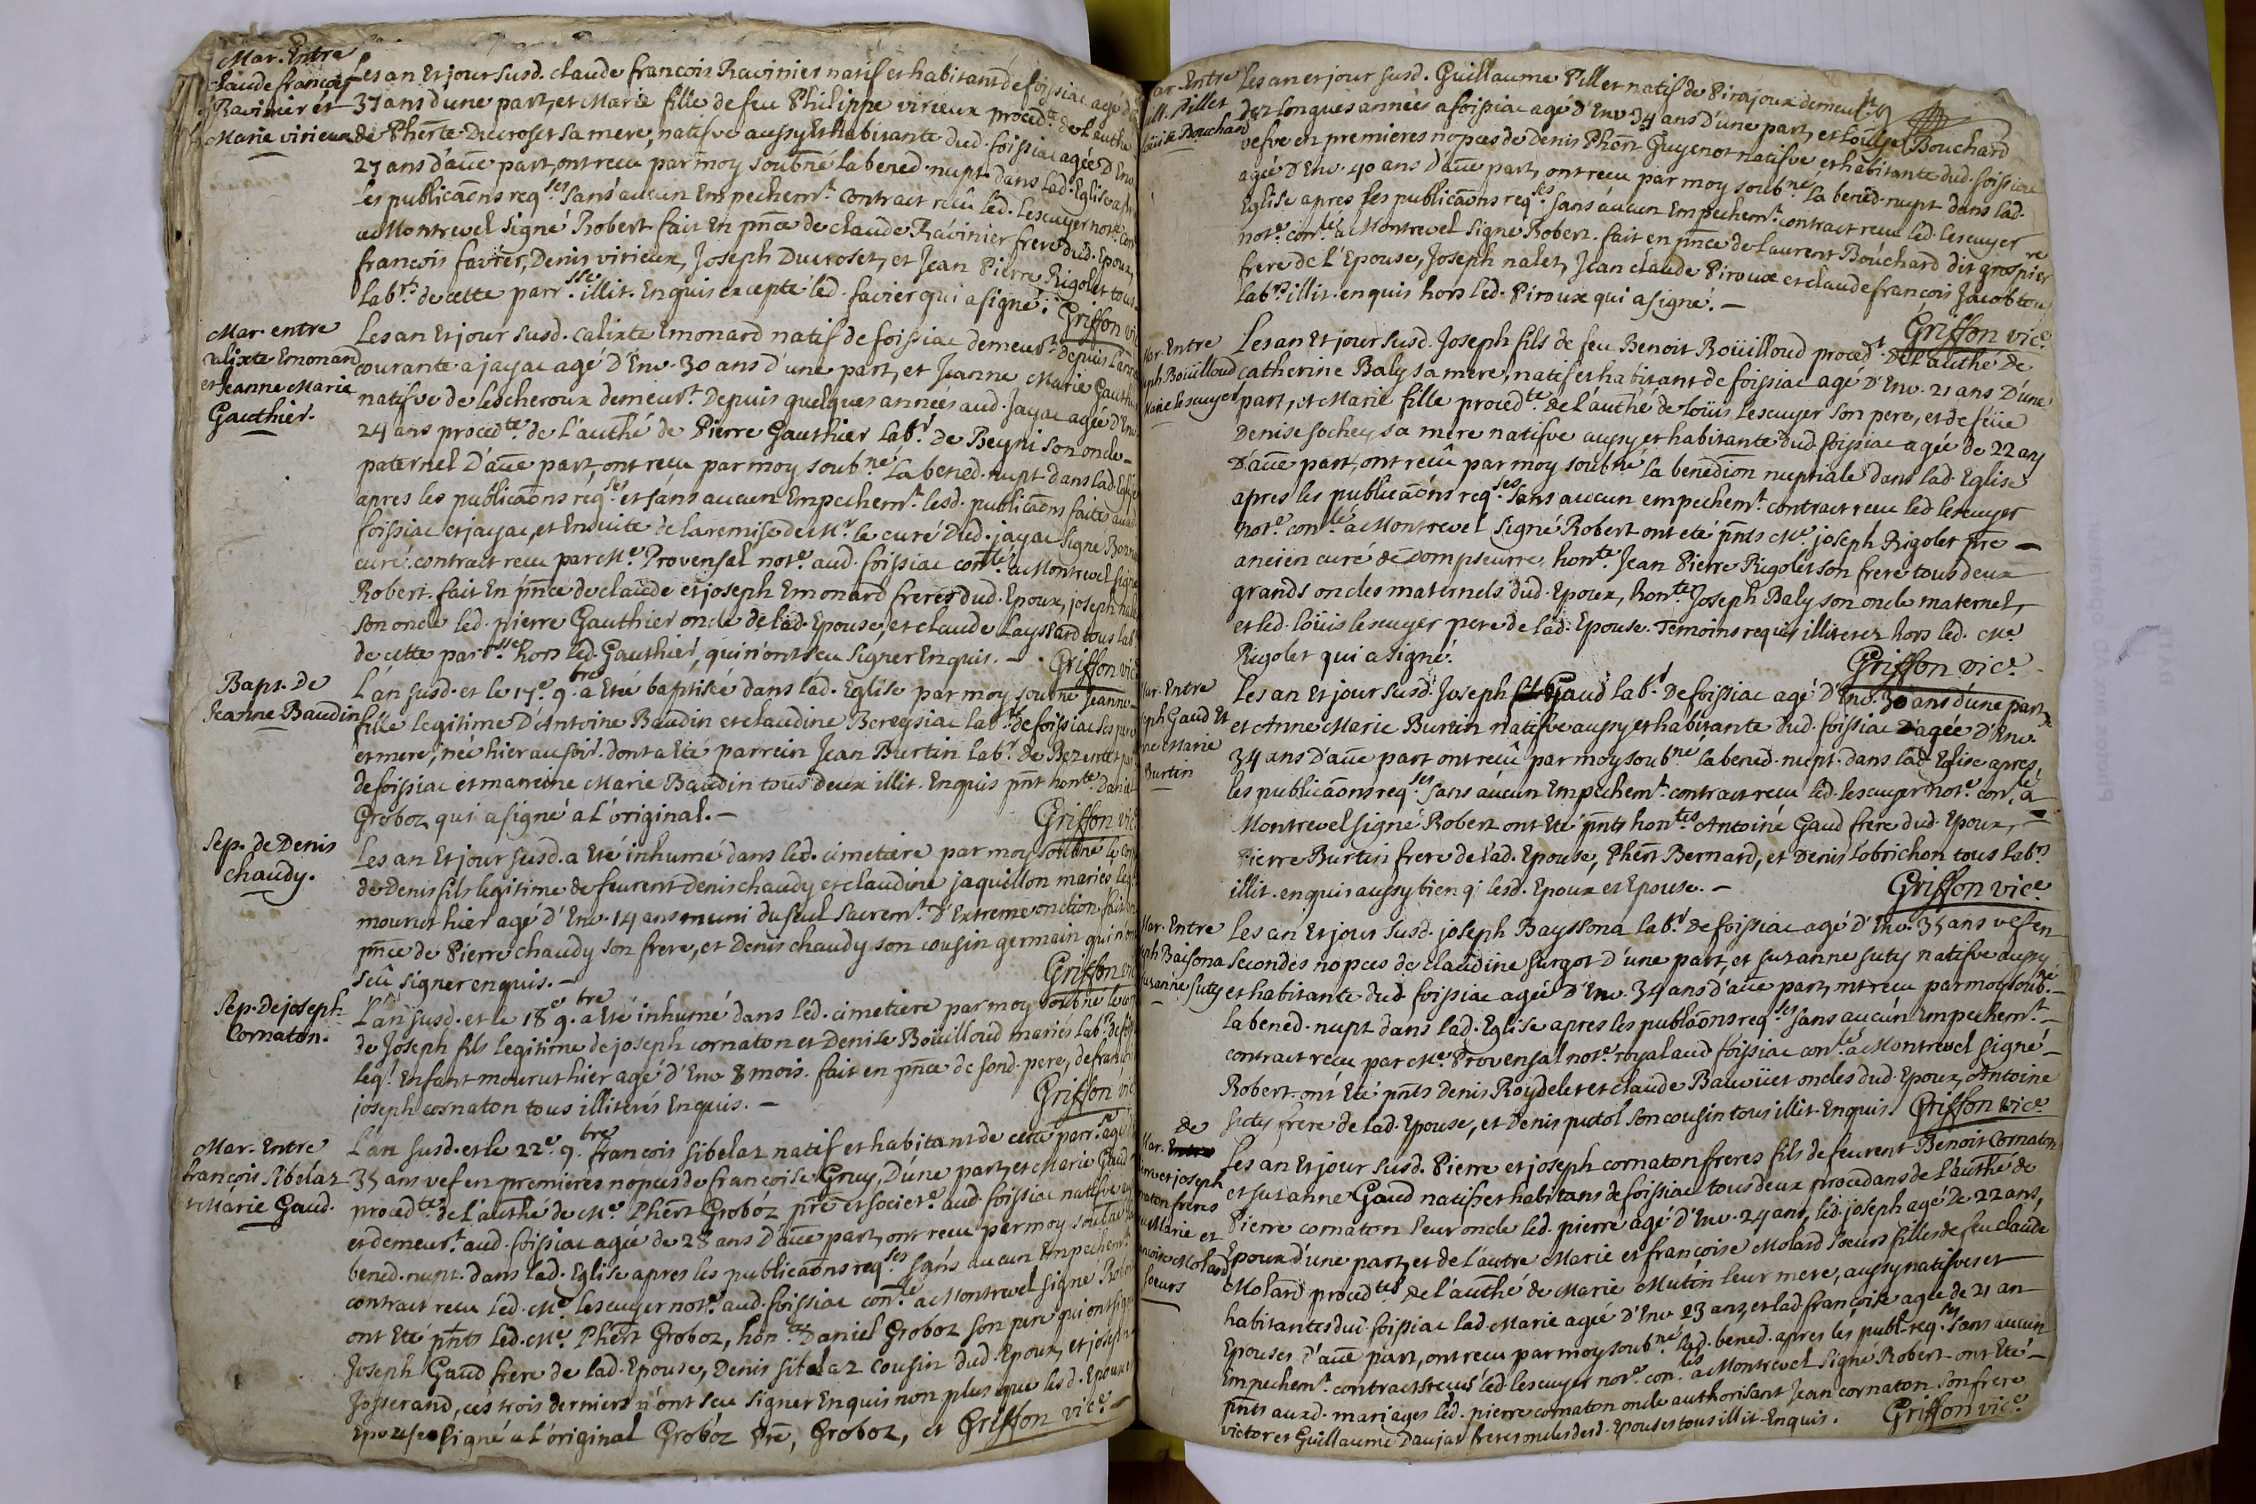 Mar. Entre
claude françois
Ravinier et
Marie virieux
Les an Et jour susd. claude francois Ravinier natif et habitant de foissiac agé d'
37 ans d'une part, et Marie fille de feu Philippe virieux proced.te de l'authé
de Phērte Ducroset sa mere, natifve aussy Et habitante dud. foissiac agée D'Env.
27 ans d'aūe part, ont recu par moy soubn̄é la bened. nupt. dans lad. Eglise
les publicaōns req.ses sans aucun Empechem.t contract recu led. Lescuyer not.e con
a Montrevel signé Robert fait En pn̄ce de claude Ravinier frere dud. Epoux,
francois favier, Denis virieux, Joseph Ducroset, et Jean Pierre Rigolet tous
lab.rs de cette parr.sse illit. Enquis excepté led. favier qui a signé. Griffon vic
Mar. entre
calixte Emonard
et Jeanne Marie
Gauthier.
Les an Et jour susd. calixte Emonard natif de foissiac demeur.t depuis l'an
courante a jayac agé d'Env. 30 ans d'une part, et Jeanne Marie Gauth
natifve de lescheroux demeur.t Depuis quelques années aud. Jayac agée d'Env
24 ans proced.te de l'authé de Pierre Gauthier lab.r De Beyni son oncle
paternel D'aūe part, ont recu par moy soubn̄é La bened. nupt. dans lad. Eglise
apres les publicaōns req.ses et sans aucun Empechem.t lesd. publicaōns faite aud
foissiac et jayac, et Ensuite de la remise de M.r le curé Dud. jayac signé Bonn
curé. contract recu par M.e Provensal not.e aud. foissiac con.lé a Montrevel signé
Robert. fait En pn̄ce de claude et joseph Emonard freres dud. Epoux, joseph
son oncle led. pierre Gauthier oncle de lad. Epouse, et claude Layssard tous lab
de cette parr.sse hors led. Gauthier, qui n'ont seu signer Enquis. — Griffon vic
Bapt. De
Jeanne Baudin
L'an susd. et le 17.e 9.bre a Eté baptisée dans lad. Eglise par moy soubn̄é Jeanne
fille legitime D'Antoine Baudin et claudine Bereysiac lab.rs de foissiac ses pere
et mere, née hier au soir. dont a Eté parrein Jean Burtin lab.r de
de foissiac et marreine Marie Baudin tous Deux illit. Enquis pn̄t hon.te Daniel
Groboz qui a signé a L'original. — Griffon vic
Sep. de Denis
chaudy.
Les an Et jour susd. a Eté inhumé dans led. cimetiere par moy soubn̄é le cor
de Denis fils legitime de feurent Denis chaudy et claudine jaquillon mariés leq.
mourut hier agé d'Env. 14 ans muni du seul sacrem.t D'Extreme onction. fait en
pn̄ce de Pierre chaudy son frere, et Denis chaudy son cousin germain qui n'on
seû signer enquis. — Griffon vic
Sep. de joseph
Cornaton.
L'an susd. et le 18.e 9.bre a Eté inhumé dans led. cimetiere par moy soubn̄é le cor
de Joseph fils legitime de joseph cornaton et Denise Boüilloud mariés lab.rs de foi
leq. Enfant mourut hier agé d'Env 8 mois. fait en pn̄ce de sond. pere, de francoi
joseph cornaton tous illiterés Enquis. — Griffon vic
Mar. Entre
francois Sibelaz
et Marie Gaud.
L'an susd. et le 22.e 9.bre francois Sibelaz natif et habitant de cette parr.se agé
35 ans vef en premieres nopces de francoise Gruy, D'une part, et Marie Gaud
proced.te de l'authé de M.e Phērt Groboz pr̄e et societ.e aud. foissiac natifve
et demeur.t aud. foissiac agée de 28 ans D'aūe part, ont recu par moy soubn̄é la
bened. nupt. dans lad. Eglise apres les publicaōns req.ses sans aucun Empechem.t
contract recu led. M.e Lescuyer not.e aud. foissiac con.lé a Montrevel signé Robert
ont Eté pn̄ts led. M.e Phērt Groboz, hon.te Daniel Groboz son pere qui ont sig
Joseph Gaud frere de lad. Epouse, Denis Sibelaz cousin dud. Epoux, et joseph
Josserand, ces trois derniers n'ont seu signer Enquis non plus que lesd. Epoux et
Epouse signé a L'original Groboz Pr̄e, Groboz, et Griffon vic.e
ar. Entre
ill. Pillet
Loüise Bouchard
Les an et jour susd. Guillaume Pillet natif de Pirajoux demeur.t
dez longues années a foissiac agé d'Env 34 ans d'une part, et Loüise Bouchard
vefve en premieres nopces de Denis Phērt Guyenot natifve et habitante dud. foissiac
agée d'Env. 40 ans d'aūe part, ont recu par moy soubn̄é la bened. nupt dans lad.
Eglise apres les publicaōns req.ses sans aucun Empechem.t contract recu led. lescuyer
not.e con.lé a Montrevel signé Robert. fait en pn̄ce de laurent Bouchard dit grospierre
frere de l'Epouse, Joseph nalet, Jean claude Piroux et claude françois Jacob tou
lab.rs illit. enquis hors led. Piroux qui a signé. — Griffon vic.e
Mar. Entre
seph Boüilloud
Marie lescuyer
Les an Et jour susd. Joseph fils de feu Benoit Boüilloud proced.t De l'authé De
catherine Baly sa mere, natif et habitant de foissiac agé d'Env. 21 ans D'une
part, et Marie fille proced.te de l'authé de loüis lescuyer son pere, et de feüe
Denise sochey sa mere natifve aussy et habitante dud. foissiac agée de 22 ans
D'aūe part, ont recû par moy soubn̄é la benediōn nuptiale dans lad. Eglise
apres les publicaōns req.ses sans aucun empechem.t contract recu led lescuyer
not.e con.lé a Montrevel signé Robert ont eté pn̄ts M.e joseph Rigolet pr̄e —
ancien curé de Dompseurre, hon.te Jean Pierre Rigolet son frere tous deux
grands oncles maternels dud. Epoux, hon.te Joseph Baly son oncle maternel,
et led. loüis lescuyer pere de lad. Epouse. Temoins requis illiterez hors led. M.e
Rigolet qui a signé. Griffon vic.e
Mar. Entre
seph Gaud Et
ne Marie
Burtin
Les an Et jour susd. Joseph Gaud lab.r De foissiac agé d'Env. 30 ans d'une part
et Anne Marie Burtin natifve aussy et habitante dud. foissiac agée D'Env.
34 ans D'aūe part ont recû par moy soubn̄é la bened. nupt. dans lad. Eglise apres
les publicaōns req.ses sans aucun Empechem.t contract recu led. lescuyer not.e con.lé a
Montrevel signé Robert ont Eté pn̄ts hon.tes Antoine Gaud frere dud. Epoux,
Pierre Burtin frere de lad. Epouse, Phērt Bernard, et Denis lobrichon tous lab.rs
illit. enquis aussy bien q; lesd. Epoux et Epouse. — Griffon vic.e
Mar. Entre
ph Baisona
suzanne suty
Les an Et jour susd. joseph Bayssona lab.r de foissiac agé d'Env. 35 ans vef en
secondes nopces de claudine surgot D'une part, et suzanne suty natifve aussy
et habitante dud. foissiac agée D'Env. 34 ans d'aūe part, ont recu par moy soub.né
la bened. nupt dans lad. Eglise apres les publaōns req.ses sans aucun Empechem.t
contract recu par M.e Provensal not.e royal aud foissiac con.lé a Montrevel signé
Robert. ont Eté pn̄ts Denis Roydelet et claude Bauvüet oncles dud. Epoux, Antoine
suty frere de lad. Epouse, et Denis putol son cousin tous illit. Enquis. Griffon vic.e
De
Mar. Entre
ierre et joseph
naton freres
Marie et
ncoise Molard
soeurs
Les an Et jour susd. Pierre et joseph cornaton freres fils de feurent Benoit Cornaton
et suzanne Gaud natifs et habitans de foissiac tous deux procedans de l'authé de
Pierre cornaton leur oncle led. pierre agé d'Env. 24 ans, led. joseph agé de 22 ans,
Epoux d'une part, et de l'autre Marie et françoise Molard soeurs filles de feu claude
Molard proced.tes de l'authé de Marie Mutin leur mere, aussy natifves et
habitantes dud. foissiac lad. Marie agée d'Env 23 ans, et lad. françoise agée de 21 an
Epouses d'aūe part, ont recu par moy soubn̄é lad. bened. apres les publ. req.ses sans aucun
Empechem.t contracts recus led. lescuyer not.e con.lés a Montrevel signé Robert. ont Eté
pn̄ts auxd. mariages led. pierre cornaton oncle authorisant Jean cornaton son frere
victor et Guillaume Daujat freres oncles desd. Epouses tous illit. Enquis. Griffon vic.e